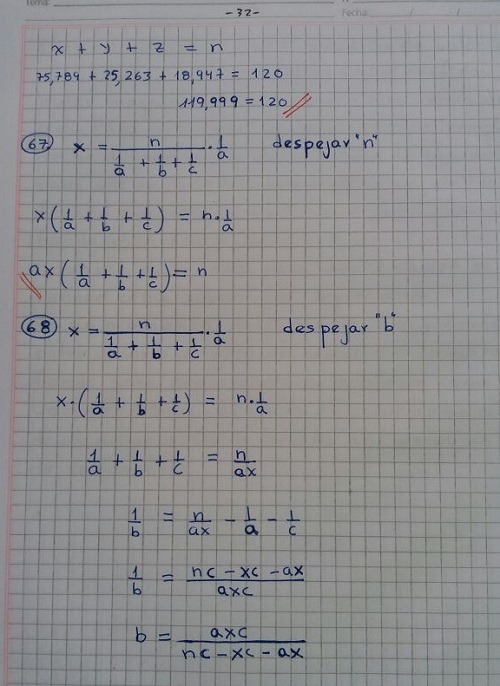 Tema:
-32-
Fecha: / /
x + y + z = n
75,789 + 25,263 + 18,947 = 120
119,999 = 120
67 x = n/(1/a + 1/b + 1/c) · 1/a despejar "n"
x(1/a + 1/b + 1/c) = n · 1/a
ax(1/a + 1/b + 1/c) = n
68 x = n/(1/a + 1/b + 1/c) · 1/a despejar "b"
x · (1/a + 1/b + 1/c) = n · 1/a
1/a + 1/b + 1/c = n/ax
1/b = n/ax - 1/a - 1/c
1/b = (nc - xc - ax)/axc
b = axc/(nc - xc - ax)